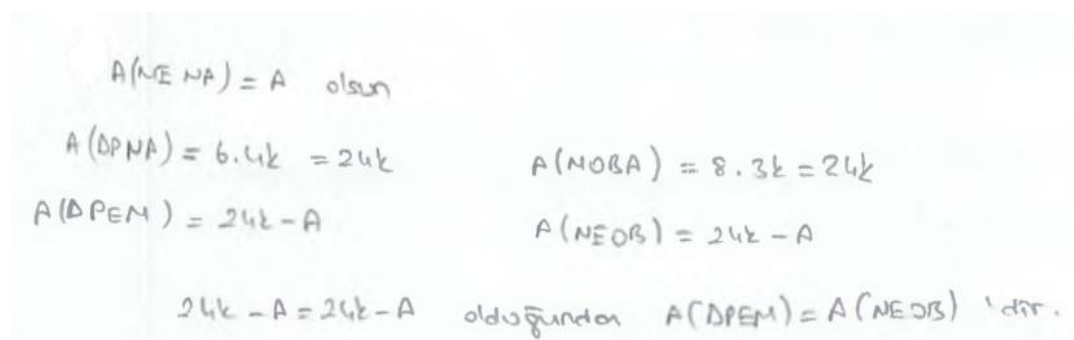 A(MENA) = A olsun
A(DPNA) = 6.4k = 24k
A(MOBA) = 8.3k = 24k
A(DPEM) = 24k - A
A(NEOB) = 24k - A
24k - A = 24k - A olduğundan A(DPEM) = A(NEOB) 'dir.